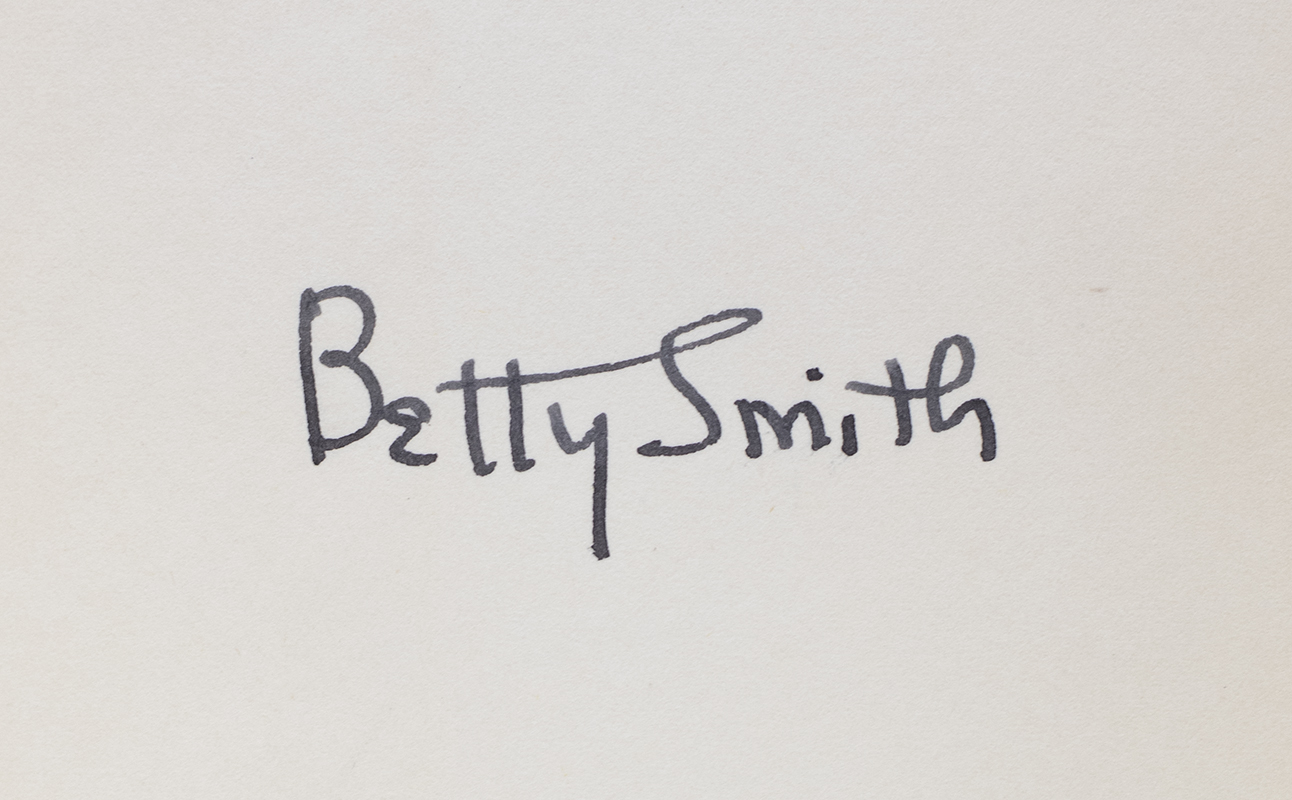 Betty Smith